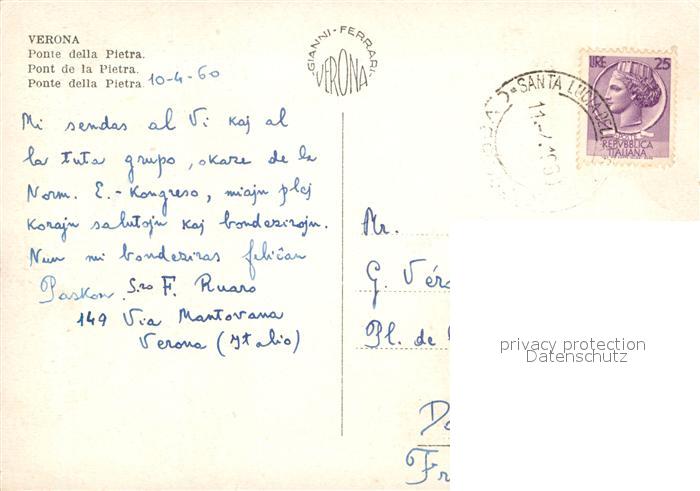 VERONA
Ponte della Pietra.
Pont de la Pietra.
Ponte della Pietra.
10-4-60
GIANNI-FERRARI-
VERONA
LIRE 25
SANTA LUCIA DEL
POSTE
REPVBBLICA
ITALIANA
Mi sendas al Vi kaj al
la tuta grupo, okaze de la
Norm. E.-Kongreso, miajn plej
korajn salutojn kaj bondezirojn.
Nun mi bondeziras feliĉan
Paskon. S.ro F. Ruaro
149 Via Mantovana
Verona (Italio)
Mr.
G. Véro
Pl. de
Fr
privacy protection
Datenschutz